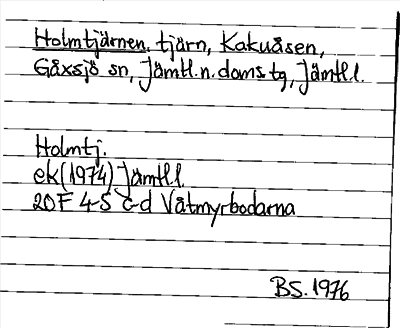 Holmtjärnen, tjärn, Kakuåsen,
Gåxsjö sn, Jämtl.n.doms.tg, Jämtl.l.
Holmtj.
ek (1974) Jämtl.l.
20F 4-5 c-d Våtmyrbodarna
BS. 1976